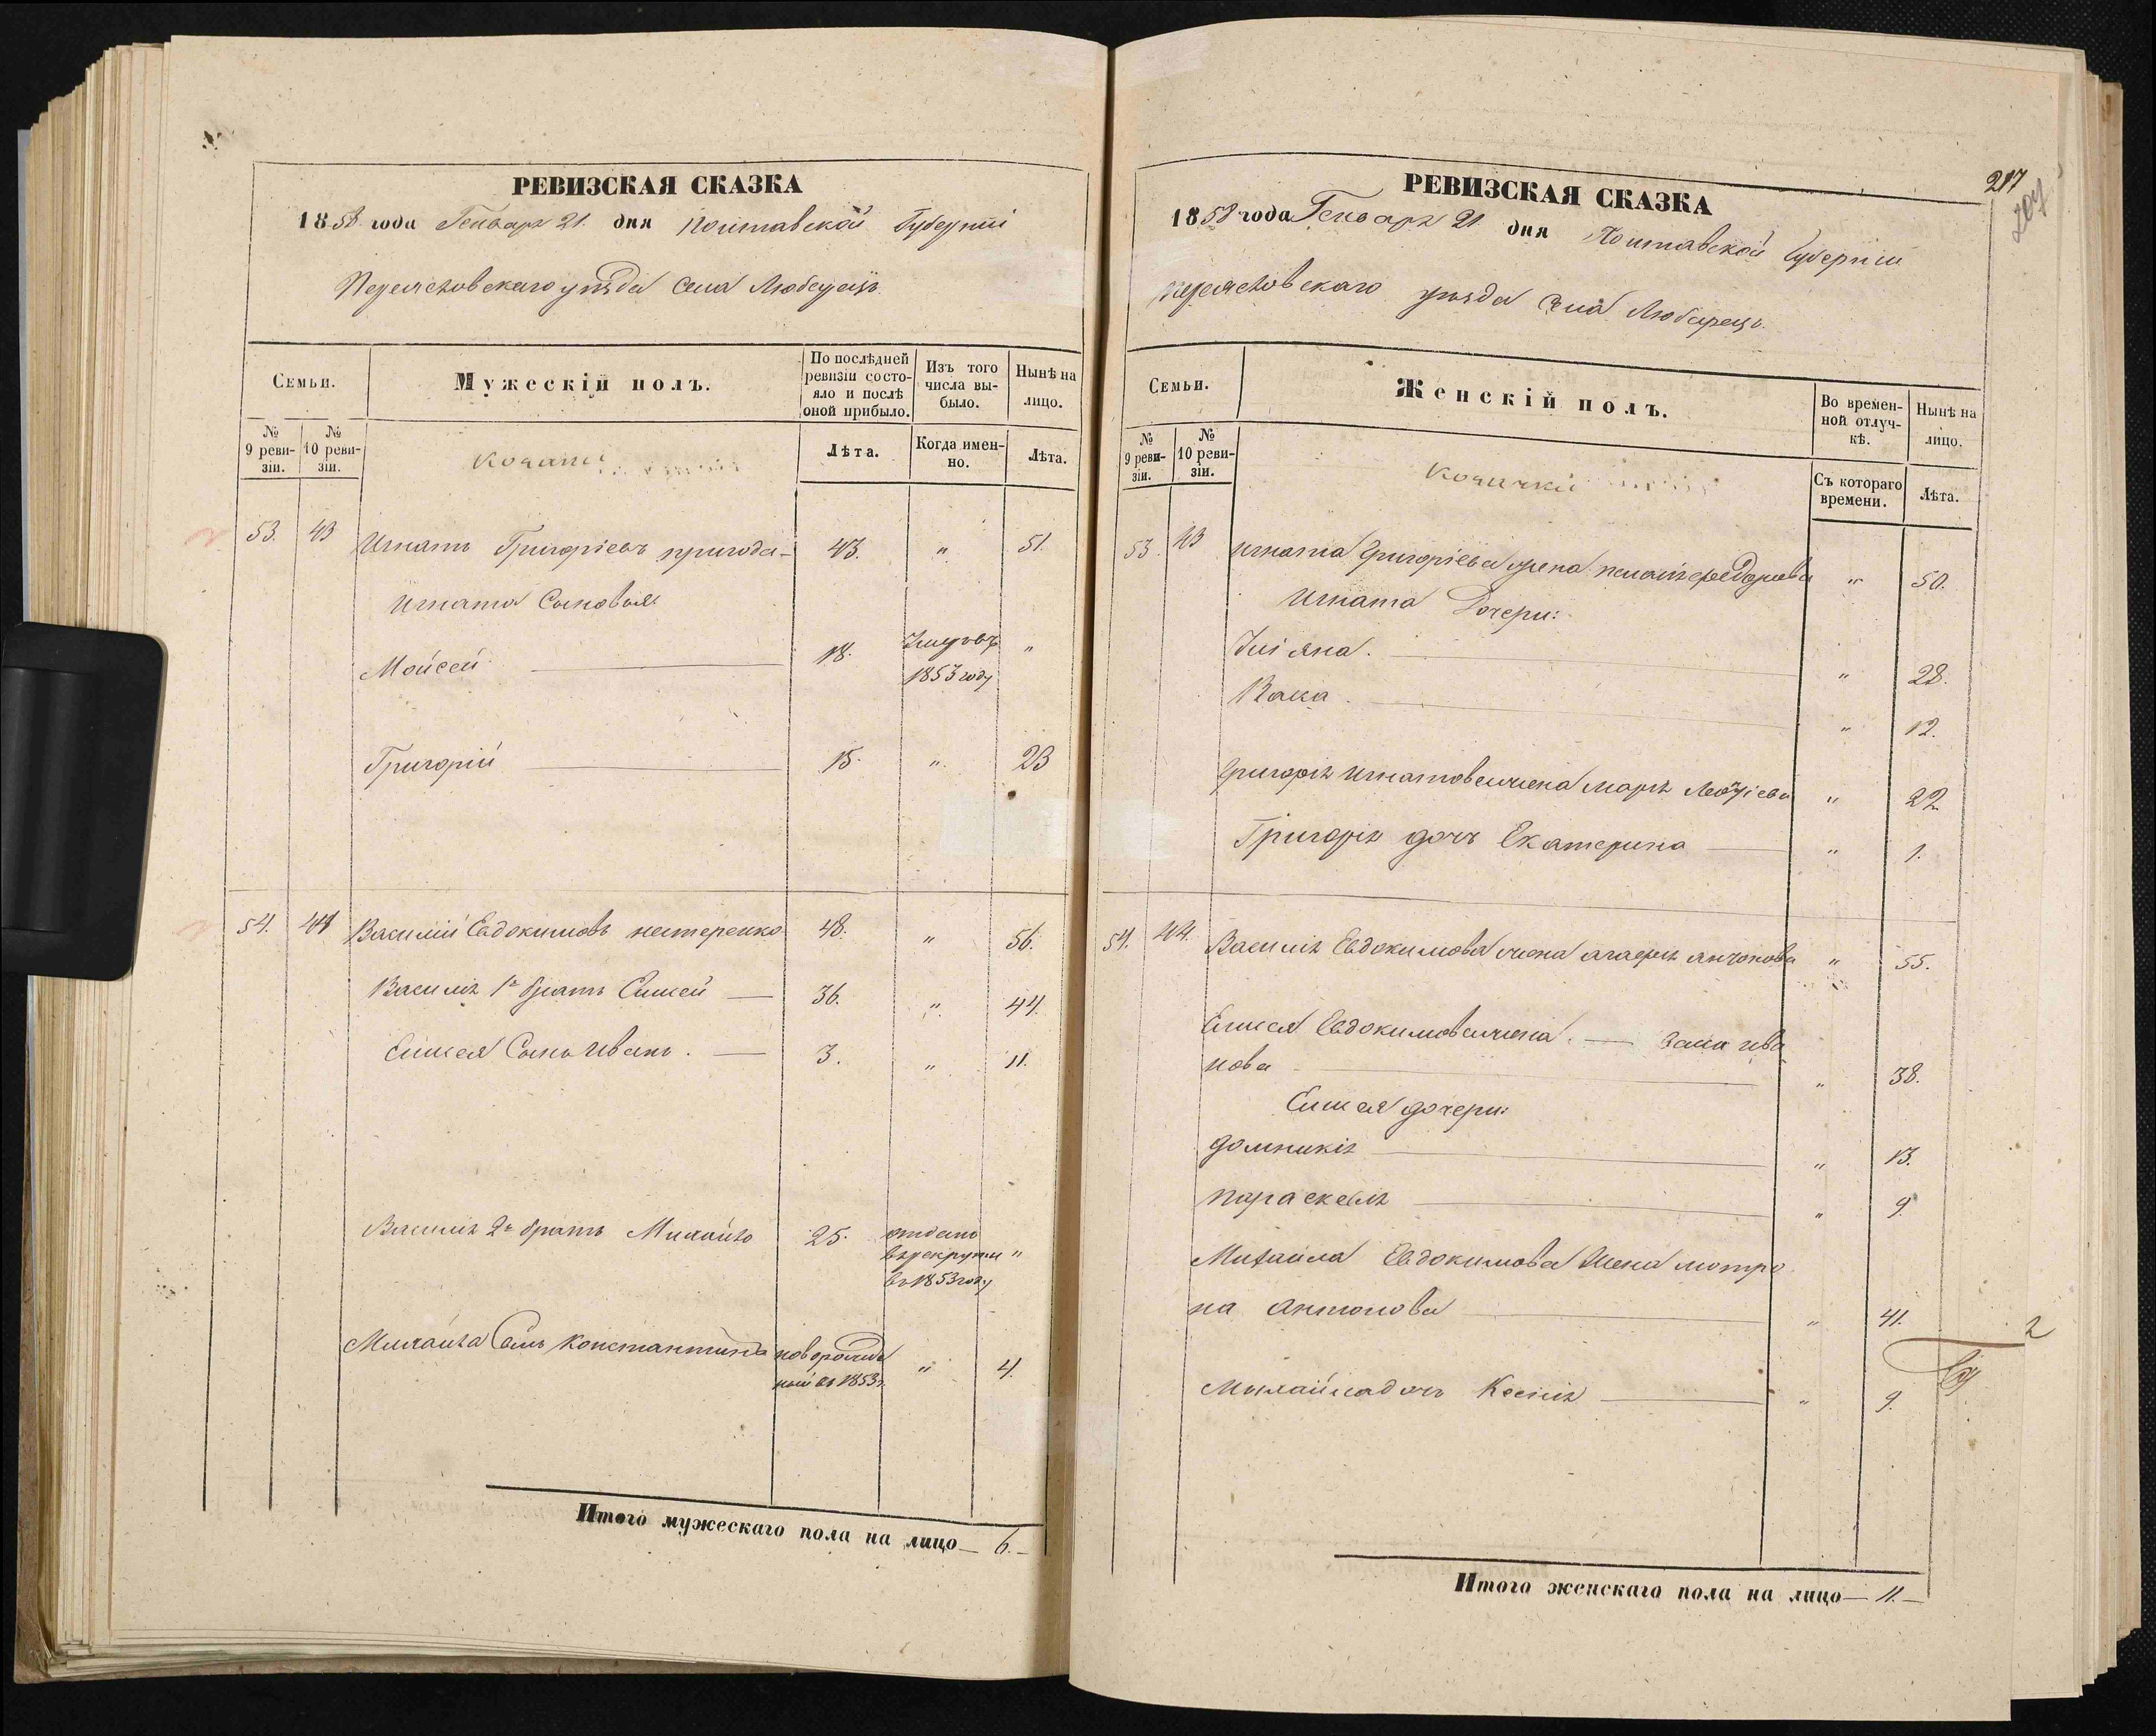 РЕВИЗСКАЯ СКАЗКА
1858 года Генваря 21 дня Полтавской Губернии
Переясловскаго уезда села Любарец
Семьи.
Мужескій полъ.
По послѣдней ревизіи состояло и послѣ оной прибыло.
Изъ того числа выбыло.
Нынѣ на лицо.
№ 9 ревизіи.
№ 10 ревизіи.
Козаки
Лѣта.
Когда именно.
Лѣта.
53. 43 Игнатъ Григоріевъ пригода 43. " 51.
Игната Сыновья:
Мойсей 18. Умеръ въ "
1853 году
Григорій 15. " 23
54. 44 Василій Евдокимовъ нестеренко 48. " 56.
Василія 1й братъ Елисей 36. " 44.
Елисея Сынъ Иванъ. 3. " 11.
Василія 2й братъ Михайло 25. отданъ
въ рекруты "
въ 1853 году
Михайла Сынъ Константинъ новорожден
ный въ 1853 г. " 4.
Итого мужескаго пола на лицо — 6. —
217
207
РЕВИЗСКАЯ СКАЗКА
1858 года Генваря 21 дня Полтавской Губернии
переясловскаго уезда села Любарец.
Семьи.
Женскій полъ.
Во временной отлучкѣ.
Нынѣ на лицо.
№ 9 ревизіи.
№ 10 ревизіи.
Козачки
Съ котораго времени.
Лѣта.
53. 43 Игната Григоріева жена пелагея федорова " 50.
Игната Дочери:
Уліяна. " 28.
" 12.
Григорія Игнатова жена марія " 22
Григорія дочь Екатерина " 1.
54. 44. Василія Евдокимова жена агафія антонова " 55.
Елисея Евдокимова жена. — ива
нова " 38.
Елисея дочери:
домникія " 13.
параскевія " 9.
Михайла Евдокимова жена мотро
на антонова " 41.
2
Михайла дочь Ксенія " 9.
Итого женскаго пола на лицо — 11. —